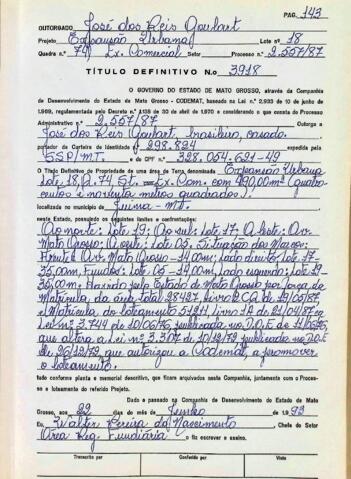 PAG. 143
OUTORGADO José dos Reis Goulart
Projeto Expansão Urbana Lote n.º 18
Quadra n.º 74 Ex. Comercial Setor Processo n.º 2.557/87
TÍTULO DEFINITIVO N.o 3918
O GOVERNO DO ESTADO DE MATO GROSSO, através da Companhia
de Desenvolvimento do Estado de Mato Grosso - CODEMAT, baseado na Lei n.º 2.933 de 10 de junho de
1969, regulamentada pelo Decreto n.º 1138 de 30 de abril de 1970 e considerando o que consta do Processo
Administrativo n.º 2.557/87 Outorga a
José dos Reis Goulart, brasileiro, casado.
portador da Carteira de Identidade n.º 298.824 expedida pela
SSP/MT. e do CPF n.º 328.054.621-49
O Título Definitivo de Propriedade de uma área de Terra, denominada Expansão Urbana
Lote 18, Q. 74, St. Ex. Com. com 490,00m² (Quatro-
centos e noventa metros quadrados).
localizada no município de Juína - MT.
neste Estado, possuindo os seguintes limites e confrontações:
Ao norte: Lote 19; Ao sul: Lote 17; A leste: Av.
Mato Grosso; A oeste: Lote 05. Situação dos Marcos:
Frente: Av. Mato Grosso - 14,00m; lado direito: lote 17-
35,00m, Fundos: Lote 05 - 14,00m, Lado esquerdo: Lote 19-
35,00m. Havido pelo Estado de Mato Grosso por força da
Matrícula, da área total 28427, Livro 2 CQ de 19/05/87,
e Matrícula do loteamento 51211, Livro 1A de 21/04/87
Lei nº 3.744 de 10/06/76, publicada no D.O.E de 11/06/76,
que altera a Lei nº 3.307 de 10/12/79 publicada no D.O.E
de 26/12/79 que autorizou a Codemat, a promover
o loteamento.
tudo conforme planta e memorial descritivo, que ficam arquivados nesta Companhia, juntamente com o Proces-
so e loteamento do referido Projeto.
Dado e passado na Companhia de Desenvolvimento do Estado de Mato
Grosso, aos 22 dias do mês de Junho de 1.993
Eu, Walter Pereira do Nascimento, Chefe do Setor
Área Reg. Fundiária o fiz escrever e assino.
Transcrito por Conferido por Visto